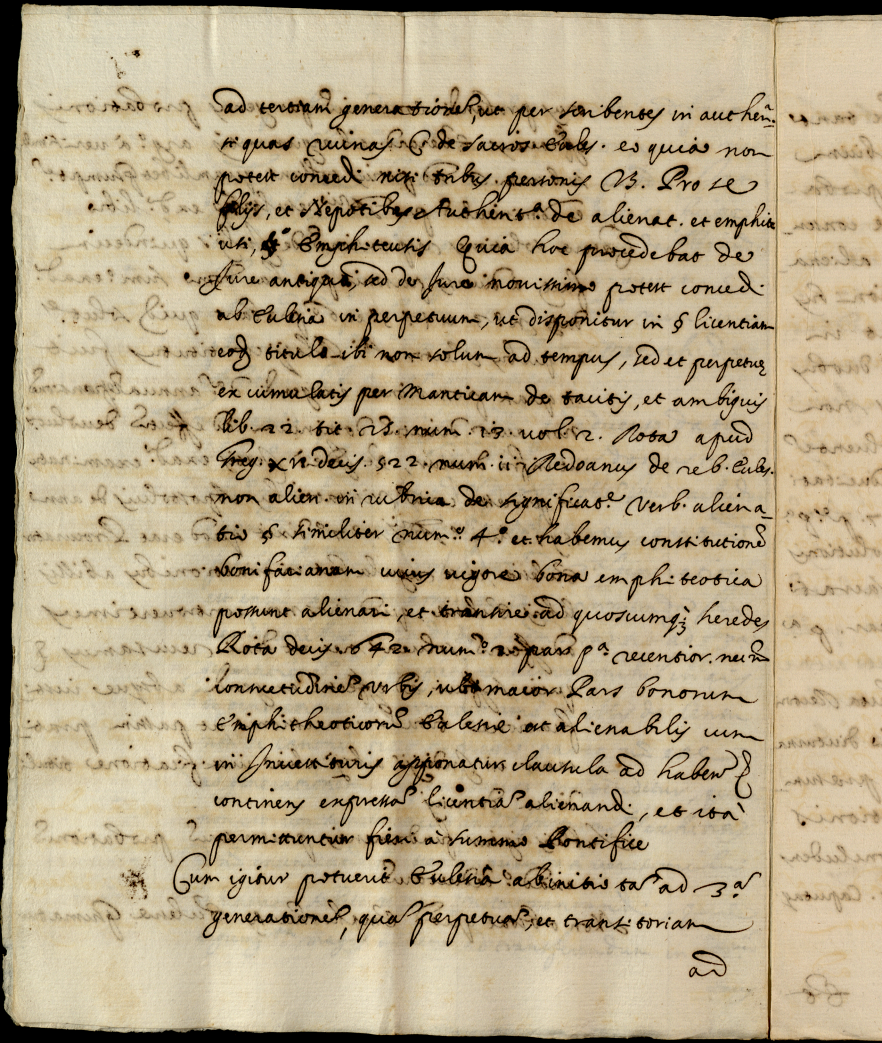 ad tertiam generationem, ut per scribentes in authen.
ti quas ruinas C. de sacros. Eccles. eo quia non
potest concedi nisi tribus personis 13. Pro se
filijs, et Nepotibus Authent. de alienat. et emphite
uti, §° Emphiteusis Quia hoc procedebat de
Jure antiquo, sed de Jure novissimo potest concedi
ab Ecclesia in perpetuum, ut disponitur in § licentiam
eod titulo ibi non solum ad tempus, sed et perpetue
ex cumulatis per Manticam de tacitis, et ambiguis
lib. 22 tit. num. 13. vol. 2. Rota apud
Greg. XV. decis. 522. num. 11 Redoanus de reb. Eccles.
non alien. in rubrica de significat.e verb. aliena=
tio § similiter num.o 4.o et habemus constitutione
bonifacianam cuius vigore bona emphiteotica
possunt alienari, et transire ad quoscumq; heredes
Rota decis. 642 num.o 2 pars p.a recentior. nec
Consuetudine Urbis, ubi maior Pars bonorum
Emphitheoticoru Ecclesie est alienabilis cum
in Investituris apponatur clausula ad haben
continens expressa licentia alienandi, et ita
permittuntur fieri a summo Pontifice
Cum igitur potuerit Ecclesia ab initio ta ad 3.a
generatione, qua perpetua, et transitoriam
ad